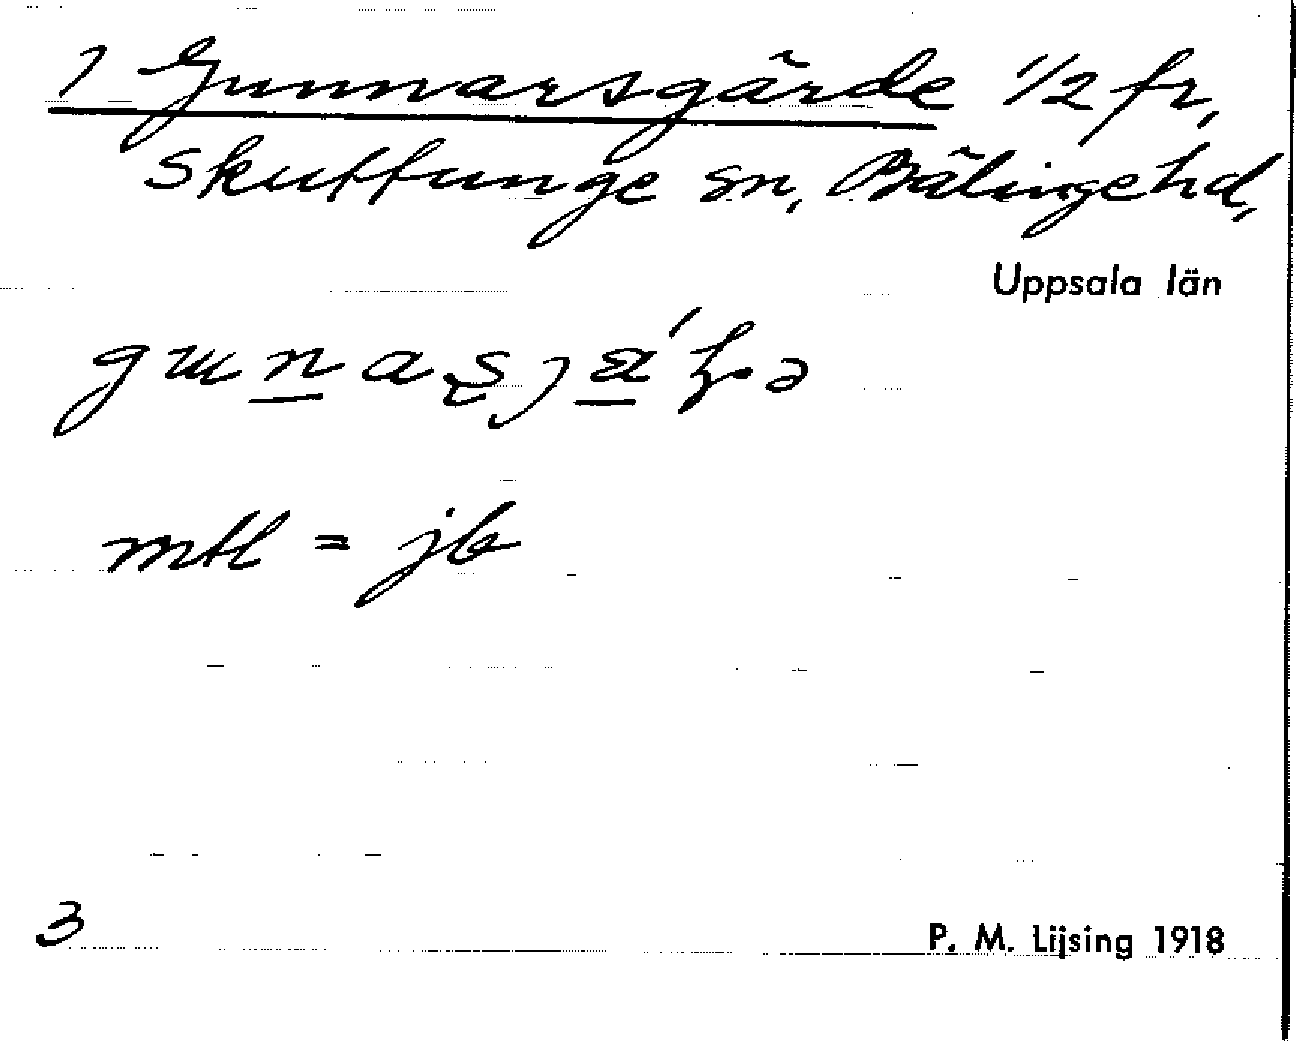 1 Gunnarsgärde 1/2 fr,
Skuttunge sn, Bälinge hd,
Uppsala län
mtl = jb
3
P. M. Lijsing 1918